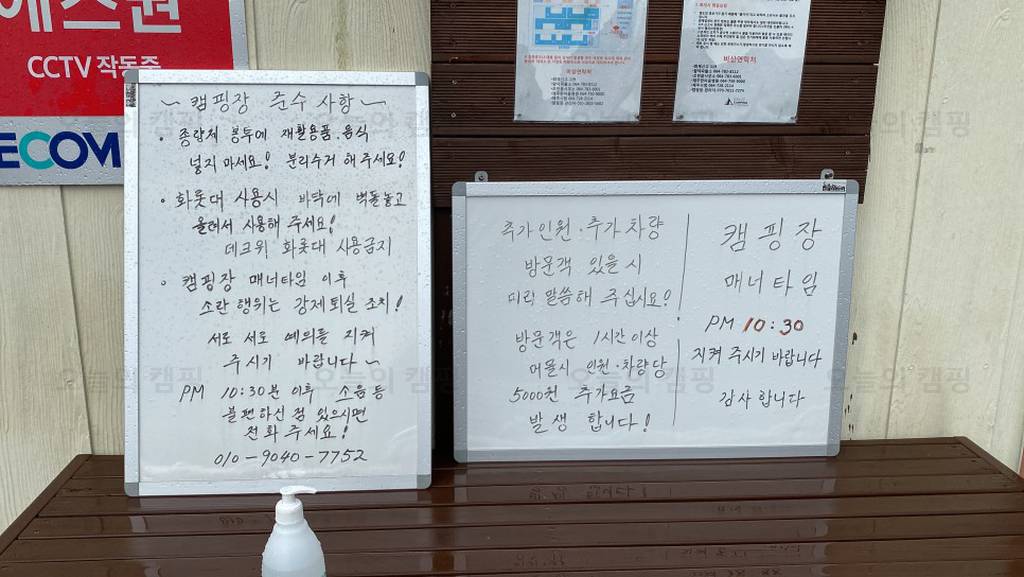 에스원
CCTV 작동중
ECOM
비상연락처
비상연락처
~ 캠핑장 준수 사항 ~
• 종량제 봉투에 재활용품·음식
넣지 마세요! 분리수거 해 주세요!
• 화롯대 사용시 바닥에 벽돌놓고
올려서 사용해 주세요!
데크위 화롯대 사용금지
• 캠핑장 매너타임 이후
소란 행위는 강제퇴실 조치!
서로 서로 예의를 지켜
주시기 바랍니다~
PM 10:30분 이후 소음 등
불편하신 점 있으시면
전화 주세요!
010-9040-7752
추가인원·추가차량
방문객 있을 시
미리 말씀해 주십시요?
방문객은 1시간이상
머물시 인원·차량당
5000원 추가요금
발생 합니다!
캠핑장
매너타임
PM 10:30
지켜 주시기 바랍니다
감사합니다
오늘의 캠핑
오늘의 캠핑
오늘의 캠핑
오늘의 캠핑
오늘의 캠핑
오늘의 캠핑
오늘의 캠핑
오늘의 캠핑